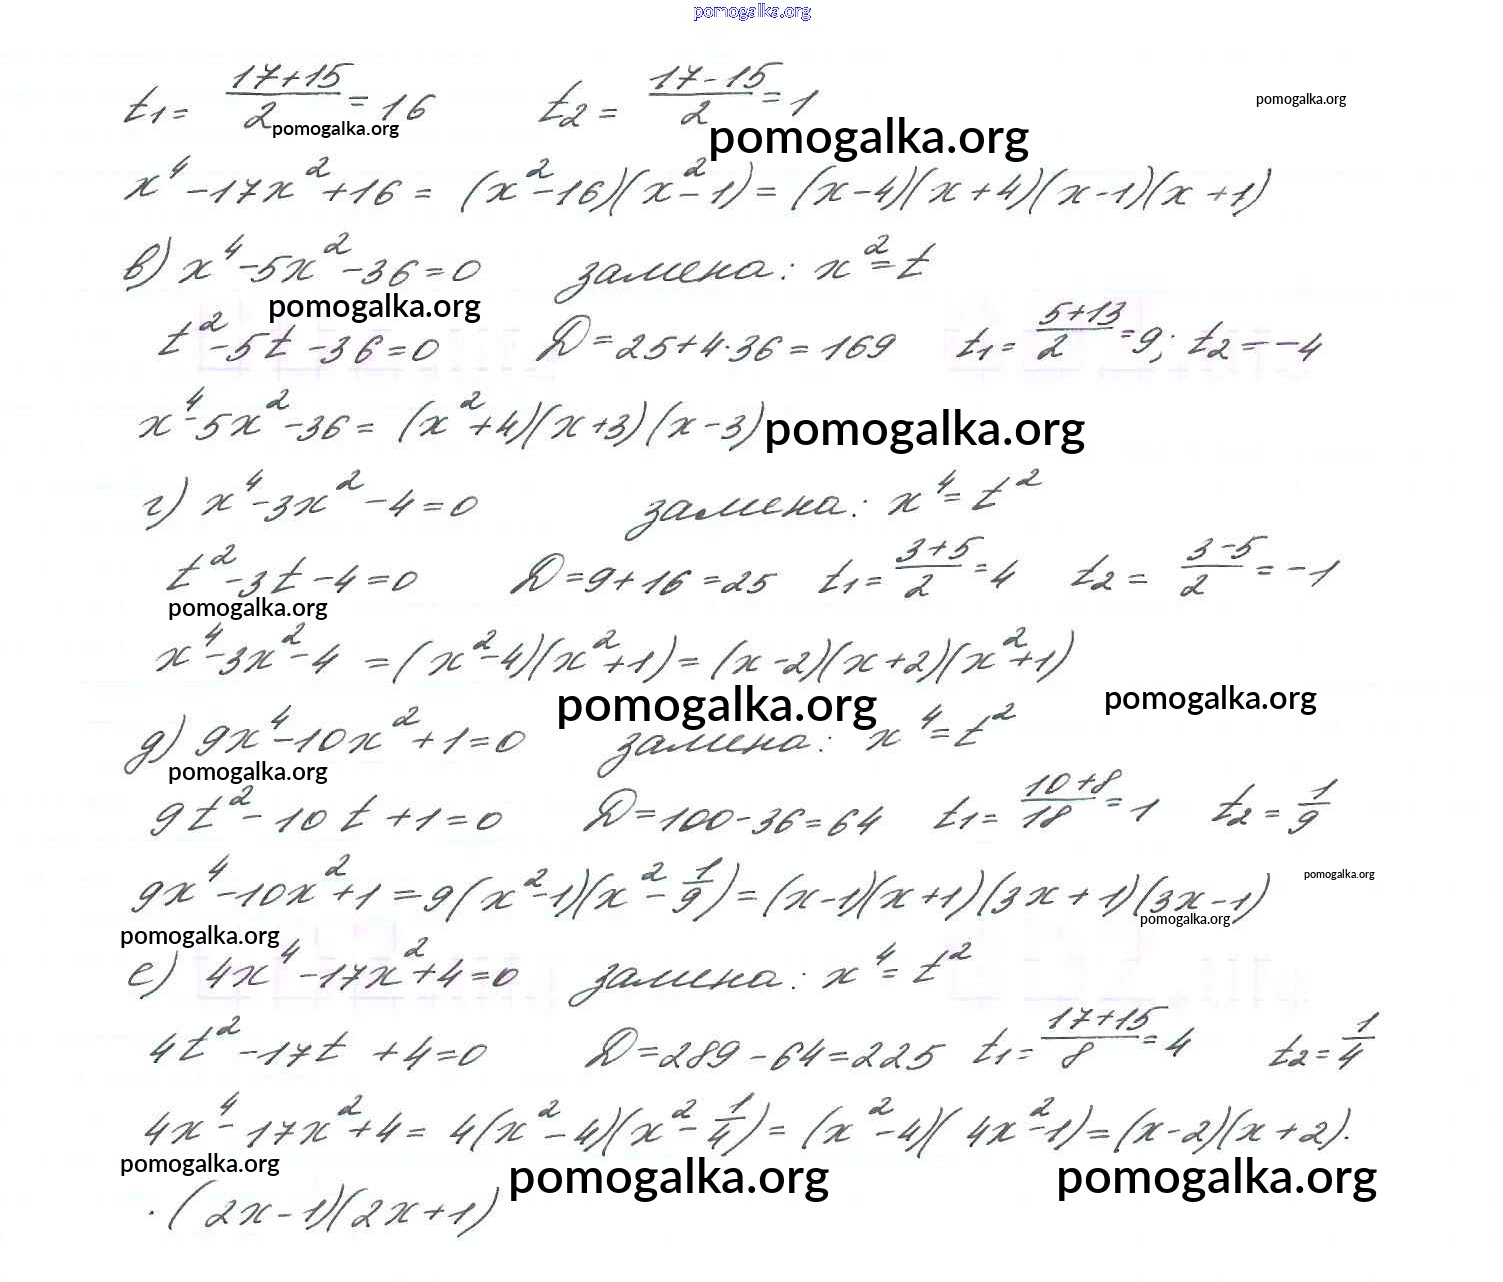 pomogalka.org
t₁ = (17+15)/2 = 16 t₂ = (17-15)/2 = 1 pomogalka.org
pomogalka.org pomogalka.org
x⁴ - 17x² + 16 = (x² - 16)(x² - 1) = (x-4)(x+4)(x-1)(x+1)
в) x⁴ - 5x² - 36 = 0 замена: x² = t
pomogalka.org
t² - 5t - 36 = 0 D = 25+4·36 = 169 t₁ = (5+13)/2 = 9; t₂ = -4
x⁴ - 5x² - 36 = (x² + 4)(x+3)(x-3) pomogalka.org
г) x⁴ - 3x² - 4 = 0 замена: x⁴ = t²
t² - 3t - 4 = 0 D = 9+16 = 25 t₁ = (3+5)/2 = 4 t₂ = (3-5)/2 = -1
pomogalka.org
x⁴ - 3x² - 4 = (x² - 4)(x² + 1) = (x-2)(x+2)(x² + 1)
pomogalka.org pomogalka.org
д) 9x⁴ - 10x² + 1 = 0 замена: x⁴ = t²
pomogalka.org
9t² - 10t + 1 = 0 D = 100-36 = 64 t₁ = (10+8)/18 = 1 t₂ = 1/9
9x⁴ - 10x² + 1 = 9(x² - 1)(x² - 1/9) = (x-1)(x+1)(3x+1)(3x-1) pomogalka.org
pomogalka.org
pomogalka.org
е) 4x⁴ - 17x² + 4 = 0 замена: x⁴ = t²
4t² - 17t + 4 = 0 D = 289-64 = 225 t₁ = (17+15)/8 = 4 t₂ = 1/4
4x⁴ - 17x² + 4 = 4(x² - 4)(x² - 1/4) = (x² - 4)(4x² - 1) = (x-2)(x+2)·
pomogalka.org pomogalka.org pomogalka.org
·(2x-1)(2x+1)